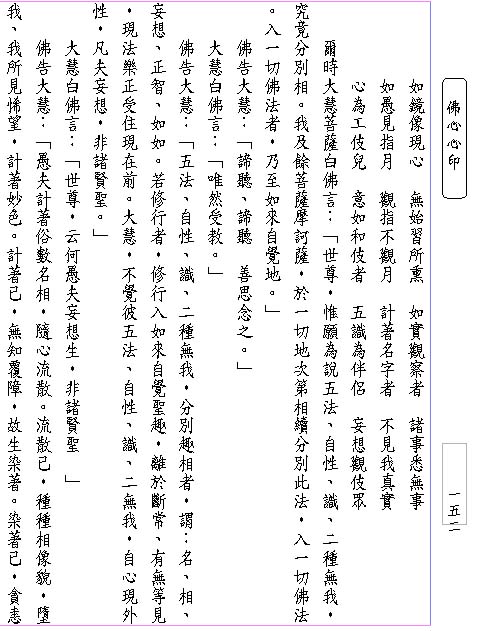 佛心心印
一五二
如鏡像現心　無始習所熏　如實觀察者　諸事悉無事
如愚見指月　觀指不觀月　計著名字者　不見我真實
心為工伎兒　意如和伎者　五識為伴侶　妄想觀伎眾
爾時大慧菩薩白佛言：「世尊，惟願為說五法、自性、識、二種無我，
究竟分別相。我及餘菩薩摩訶薩，於一切地次第相續分別此法，入一切佛法
。入一切佛法者，乃至如來自覺地。」
佛告大慧：「諦聽、諦聽　善思念之。」
大慧白佛言：「唯然受教。」
佛告大慧：「五法、自性、識、二種無我，分別趣相者，謂：名、相、
妄想、正智、如如。若修行者，修行入如來自覺聖趣，離於斷常、有無等見
，現法樂正受住現在前。大慧，不覺彼五法、自性、識、二無我，自心現外
性，凡夫妄想，非諸賢聖。」
大慧白佛言：「世尊，云何愚夫妄想生，非諸賢聖　」
佛告大慧：「愚夫計著俗數名相，隨心流散。流散已，種種相像貌，墮
我、我所見悕望，計著妙色。計著已，無知覆障，故生染著。染著已，貪恚